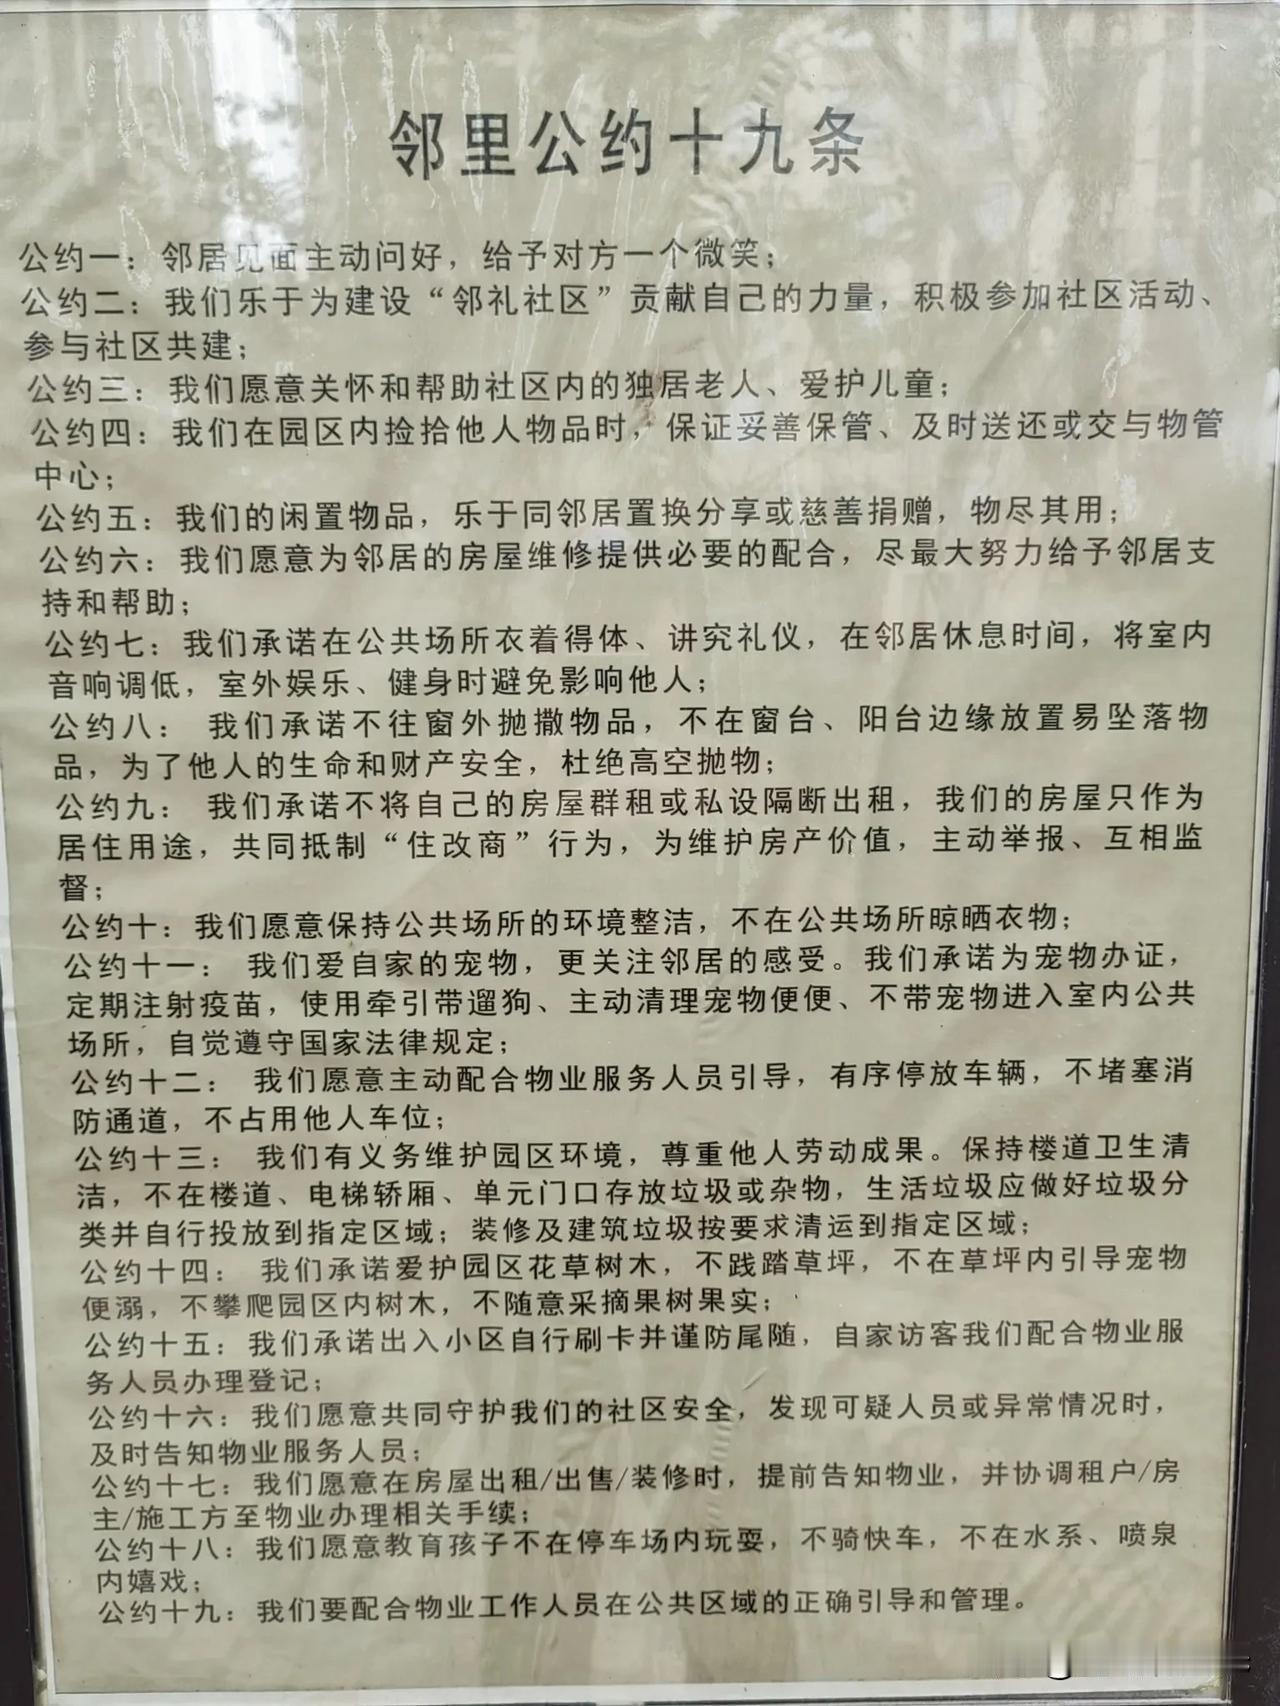 邻里公约十九条
公约一：邻居见面主动问好，给予对方一个微笑；
公约二：我们乐于为建设“邻礼社区”贡献自己的力量，积极参加社区活动、
参与社区共建；
公约三：我们愿意关怀和帮助社区内的独居老人、爱护儿童；
公约四：我们在园区内捡拾他人物品时，保证妥善保管、及时送还或交与物管
中心；
公约五：我们的闲置物品，乐于同邻居置换分享或慈善捐赠，物尽其用；
公约六：我们愿意为邻居的房屋维修提供必要的配合，尽最大努力给予邻居支
持和帮助；
公约七：我们承诺在公共场所衣着得体、讲究礼仪，在邻居休息时间，将室内
音响调低，室外娱乐、健身时避免影响他人；
公约八： 我们承诺不往窗外抛撒物品，不在窗台、阳台边缘放置易坠落物
品，为了他人的生命和财产安全，杜绝高空抛物；
公约九： 我们承诺不将自己的房屋群租或私设隔断出租，我们的房屋只作为
居住用途，共同抵制“住改商”行为，为维护房产价值，主动举报、互相监
督；
公约十：我们愿意保持公共场所的环境整洁，不在公共场所晾晒衣物；
公约十一： 我们爱自家的宠物，更关注邻居的感受。我们承诺为宠物办证，
定期注射疫苗，使用牵引带遛狗、主动清理宠物便便、不带宠物进入室内公共
场所，自觉遵守国家法律规定；
公约十二： 我们愿意主动配合物业服务人员引导，有序停放车辆，不堵塞消
防通道，不占用他人车位；
公约十三： 我们有义务维护园区环境，尊重他人劳动成果。保持楼道卫生清
洁，不在楼道、电梯轿厢、单元门口存放垃圾或杂物，生活垃圾应做好垃圾分
类并自行投放到指定区域；装修及建筑垃圾按要求清运到指定区域；
公约十四： 我们承诺爱护园区花草树木，不践踏草坪，不在草坪内引导宠物
便溺，不攀爬园区内树木，不随意采摘果树果实；
公约十五：我们承诺出入小区自行刷卡并谨防尾随，自家访客我们配合物业服
务人员办理登记；
公约十六：我们愿意共同守护我们的社区安全，发现可疑人员或异常情况时，
及时告知物业服务人员；
公约十七：我们愿意在房屋出租/出售/装修时，提前告知物业，并协调租户/房
主/施工方至物业办理相关手续；
公约十八：我们愿意教育孩子不在停车场内玩耍，不骑快车，不在水系、喷泉
内嬉戏；
公约十九：我们要配合物业工作人员在公共区域的正确引导和管理。